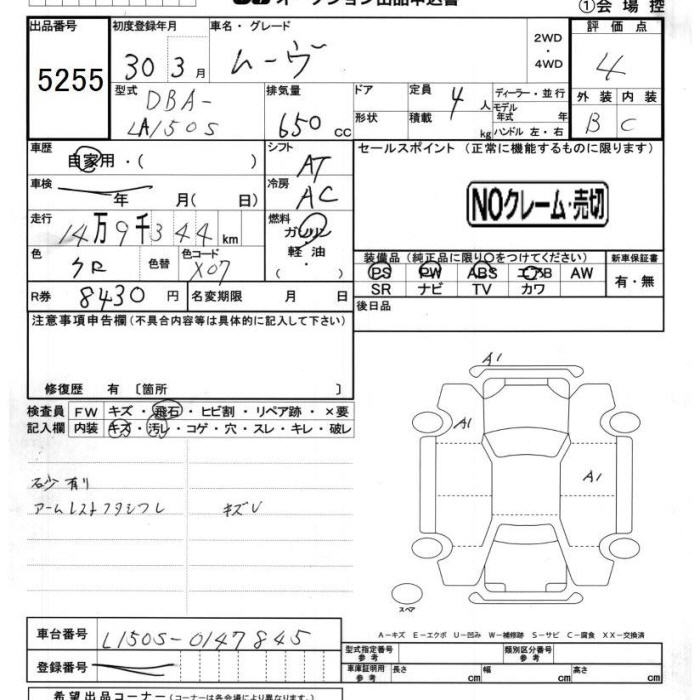 オークション出品申込書
①会場控
出品番号 初度登録年月 車名・グレード 評価点
5255
30 3月 ムーヴ 2WD・4WD 4
型式 DBA-LA150S
排気量 650 cc
ドア 形状
定員 4 人
積載 kg
ディーラー・並行
モデル年式 年
ハンドル 左・右
外装 内装
B C
車歴 自家用・( )
シフト AT
セールスポイント(正常に機能するものに限ります)
車検 年 月( 日)
冷房 AC
NOクレーム・売切
走行 14万9千344 km
燃料 ガソリン 軽油 ( )
色 クロ 色替 色コード X07
装備品(純正品に限り○をつけてください) 新車保証書
PS PW ABS エアB AW 有・無
SR ナビ TV カワ
R券 8430 円 名変期限 月 日
後日品
注意事項申告欄(不具合内容等は具体的に記入して下さい)
修復歴 有 〔箇所 〕
検査員 FW キズ・飛石・ヒビ割・リペア跡・×要
記入欄 内装 キズ・汚レ・コゲ・穴・スレ・キレ・破レ
A1
A1
A1
砂有り
アームレストフタシフレ キズU
スペア
A-キズ E-エクボ U-凹み W-補修跡 S-サビ C-腐食 XX-交換済
車台番号 LA150S-0147845
登録番号
型式指定番号参考 類別区分番号参考
車庫証明用参考 長さ cm 幅 cm 高さ cm
希望出品コーナー(コーナーは各会場により異なります。)